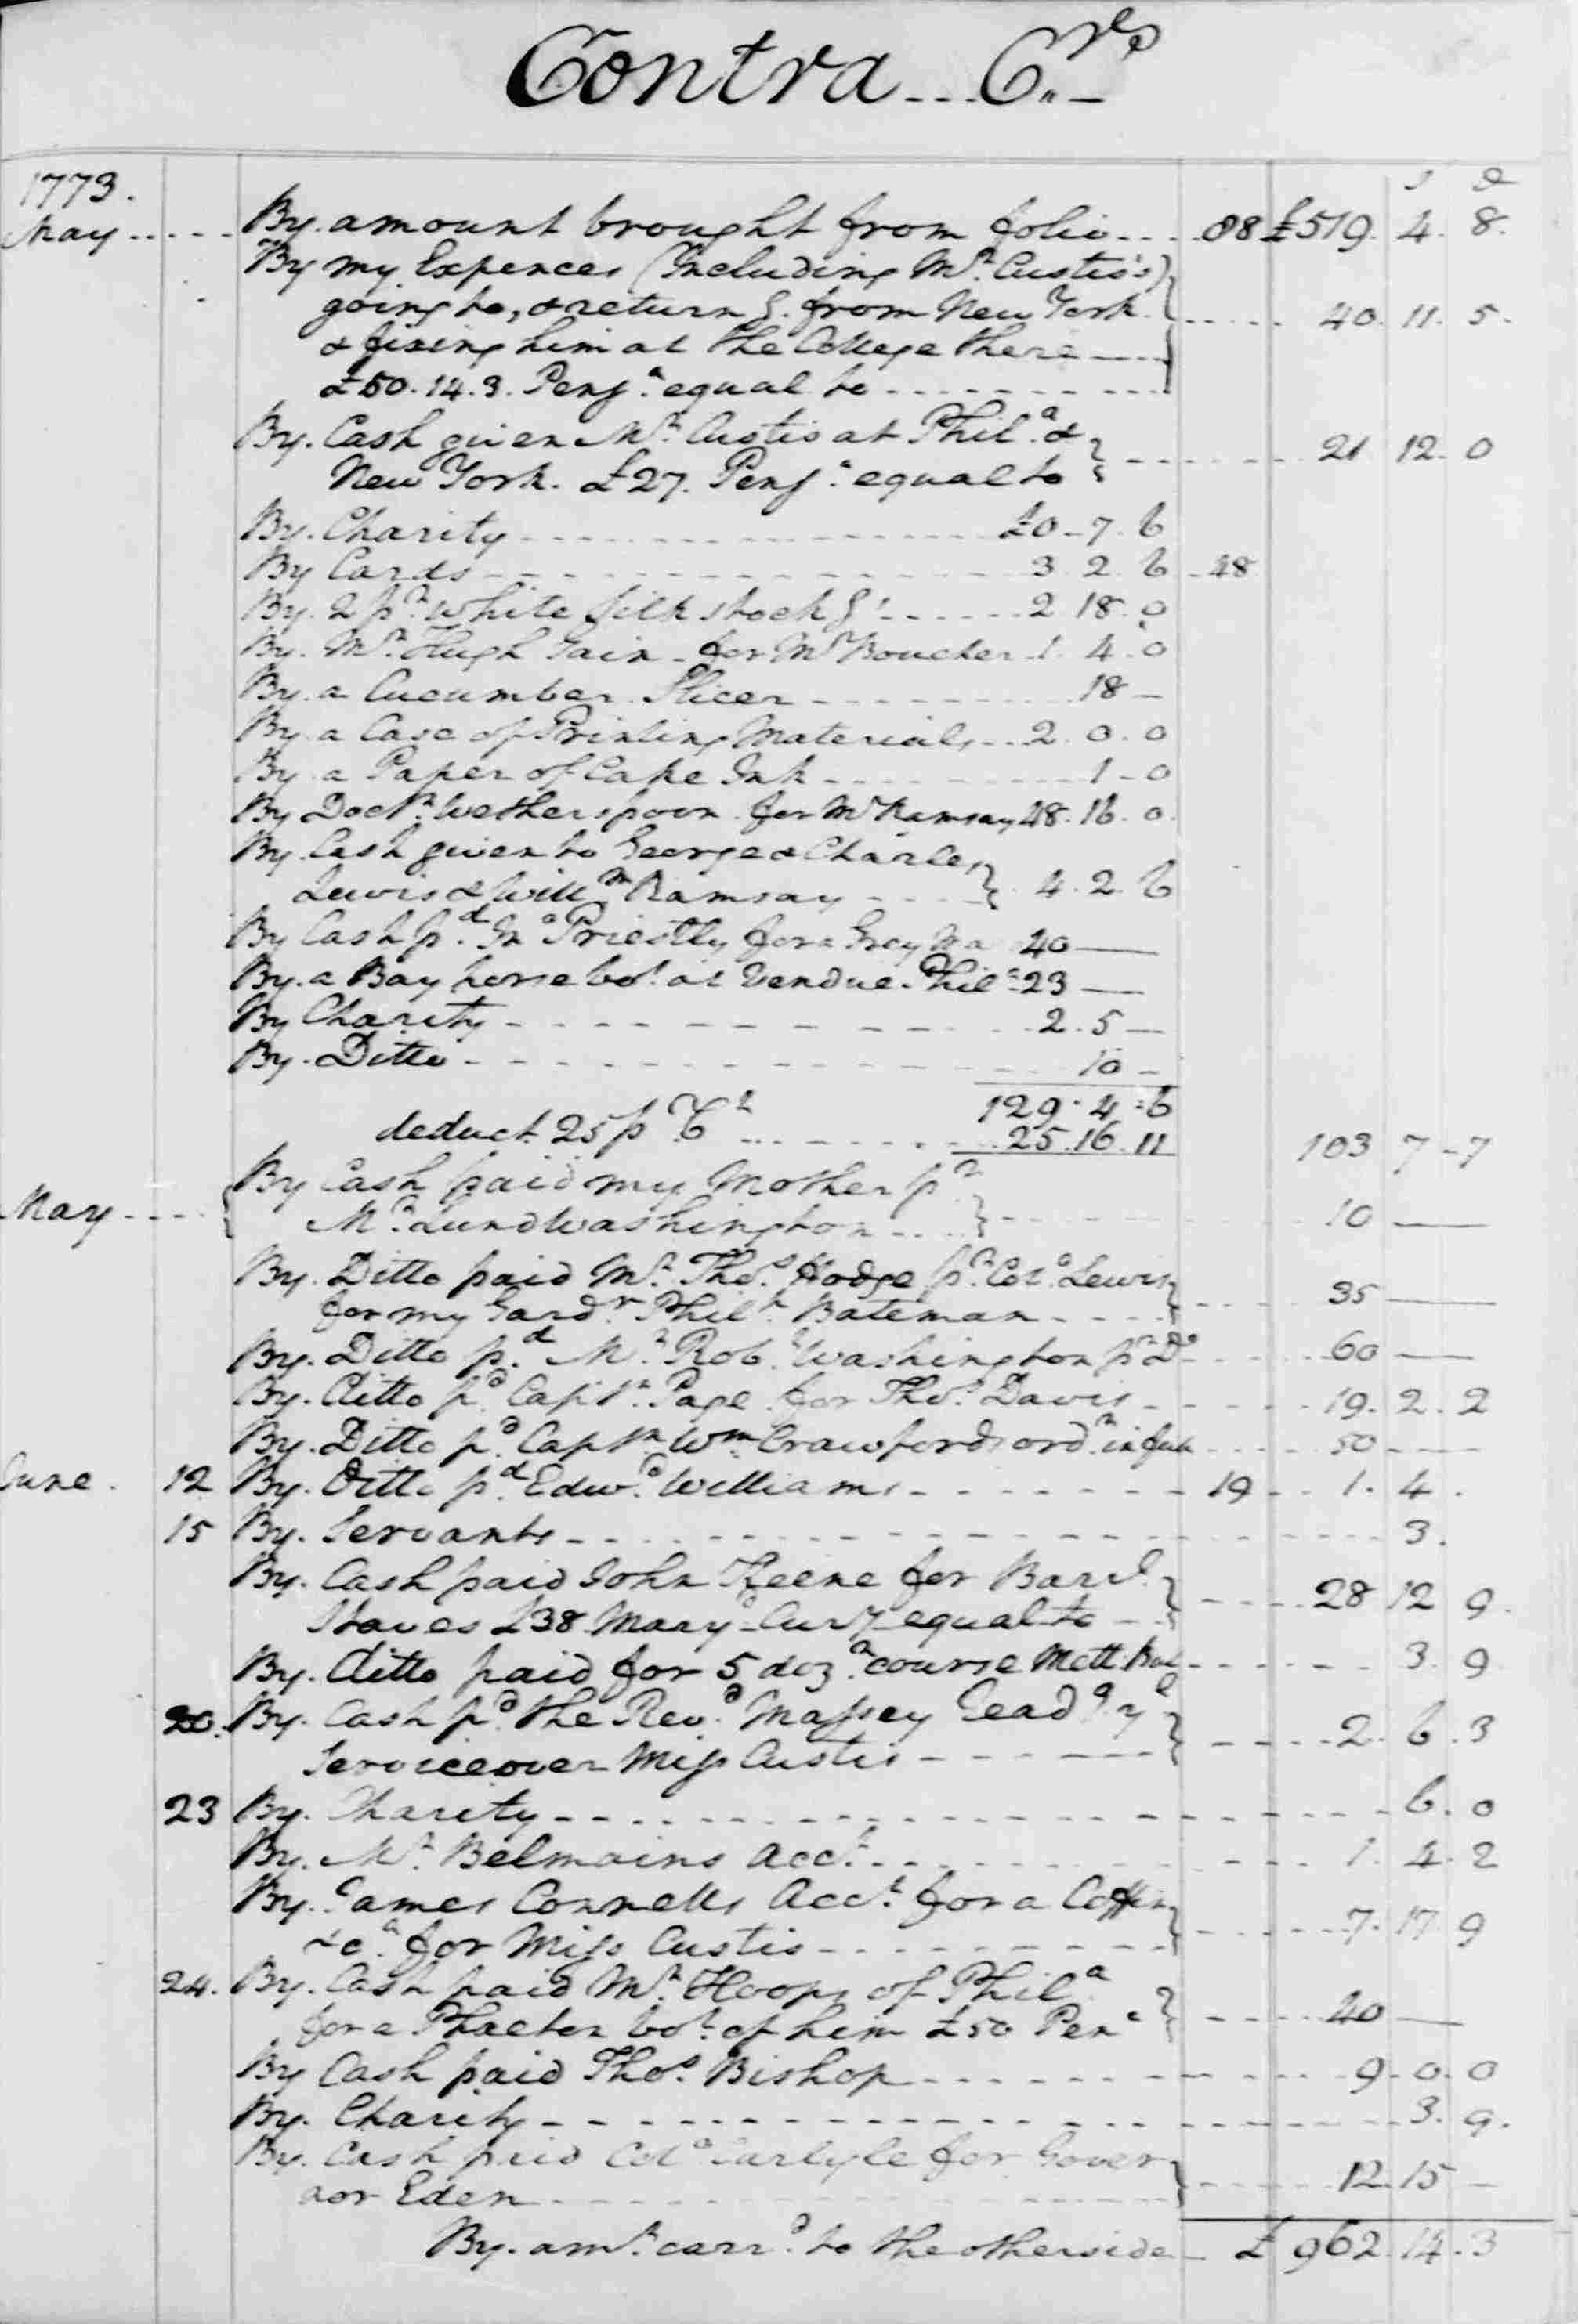 Contra C.rs
1773.
s d
May By. amount brought from folio 88 £519. 4. 8.
By my Expences (Including Mr. Custis's)
going to, & returng. from New York 40. 11. 5.
& fixing him at the College there
£50.14.3. Pensa. equal to
By. Cash given Mr. Custis at Phila. &
New York. £27. Pensa. equal to 21 12. 0
By. Charity £0-7.6
By Cards 3.2.6 48
By. 2 pr. white silk stockgs. 2 18.0
By. Mr. Hugh Gain for Mr Boucher 1. 4.0
By. a Cucumber Slicer 18 -
By. a Case of Printing Materials 2.0.0
By. a Paper of Cake Ink 1-0
By Doctr. Wetherspoon for Mr Ramsay 48.16.0.
By Cash given to George & Charles
Lewis & Willm. Ramsay 4.2.6
By Cash pd. Jno. Priestly for a Grey Ma 40 —
By. a Bay horse bot. at Vendue Phila. 23 —
By Charity 2.5 —
By. Ditto 10 -
129.4:6
deduct. 25 p Ct 25.16.11 103 7-7
By Cash paid my Mother pr.
May Mr. Lund Washington 10 —
By. Ditto paid Mr. Thos. Hodge pr. Colo. Lewis
for my Gardr. Phil. Bateman 35 —
By. Ditto pd. Mr. Robt. Washington pr. Do 60 —
By. Ditto pd. Captn. Page for Thos. Davis 19. 2. 2
By. Ditto pd. Captn. Wm. Crawfords ordr. in full 50 —
June. 12 By. Ditto pd. Edwd. Williams 19 1. 4.
15 By. Servants 3.
By. Cash paid John Keene for Barrl.
Staves £38 Maryd. Curry equal to 28 12 9.
By. Ditto paid for 5 dozn. course Mett. 3. 9
20. By. Cash pd. the Revd. Massey Readg. ye
Service over Miss Custis 2. 6. 3
23 By. Charity 6. 0
By. Mr. Belmains Acct. 1. 4. 2
By. James Connells Acct. for a Coffin
&ca. for Miss Custis 7. 17. 9
24. By. Cash paid Mr. Hoops of Phila
for a Phaeton bot. of him £50 Pena 40 —
By Cash paid Thos. Bishop 9. 0. 0
By. Charity 3. 9.
By. Cash paid Colo. Carlyle for Gover
nor Eden 12. 15 —
By. amt. carrd. to the otherside £ 962. 14. 3